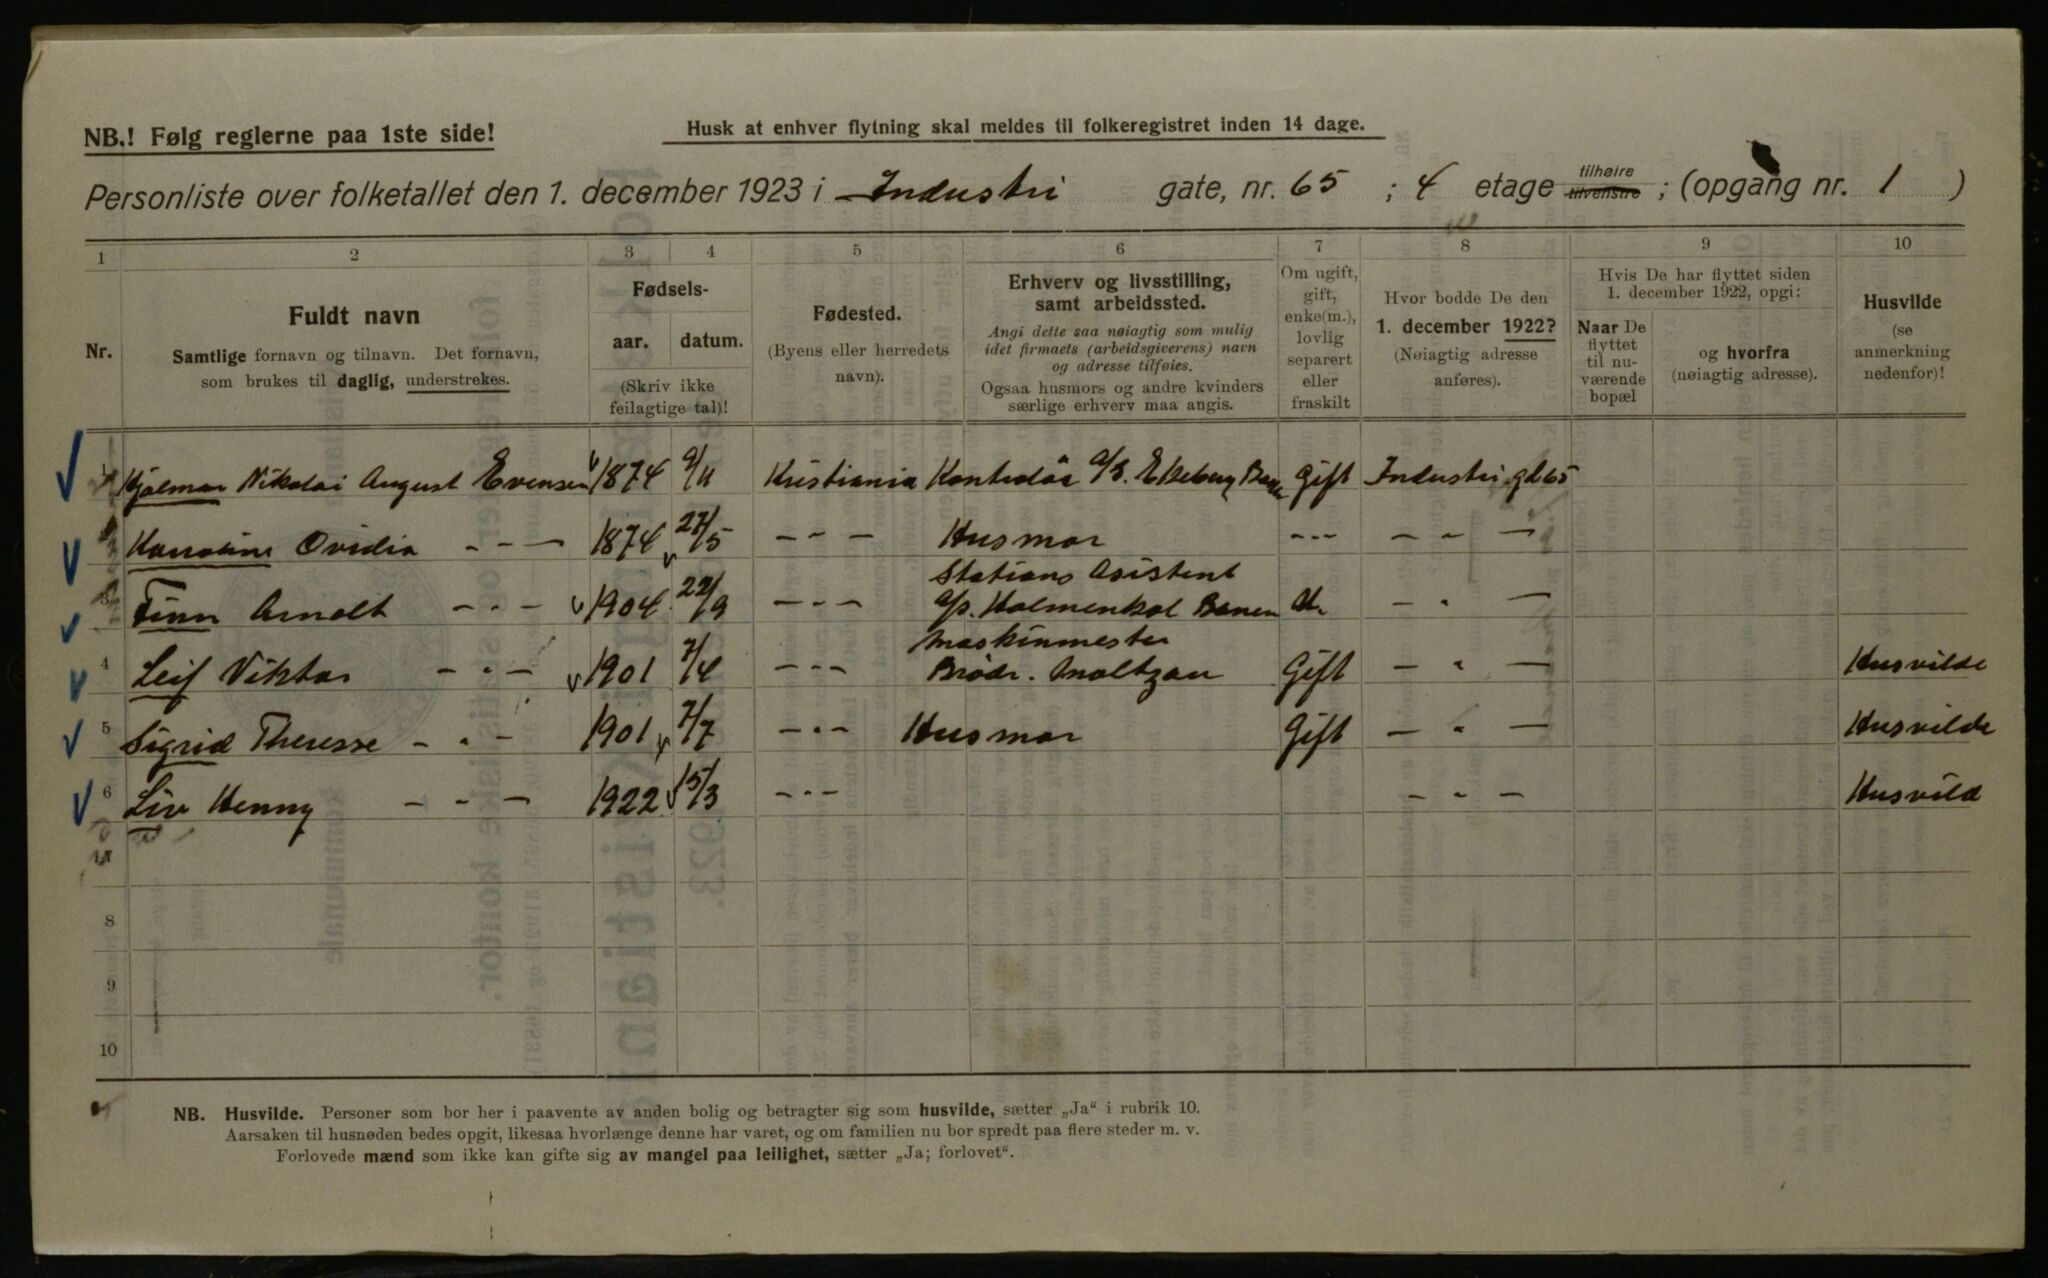 NB.! Følg reglerne paa 1ste side!
Husk at enhver flytning skal meldes til folkeregistret inden 14 dage.
Personliste over folketallet den 1. december 1923 i Industri gate, nr. 65 ; 4 etage tilhøire tilvenstre ; (opgang nr. 1 )
1 2 3 4 5 6 7 8 9 10
Nr.
Fuldt navn
Samtlige fornavn og tilnavn. Det fornavn,
som brukes til daglig, understrekes.
Fødsels-
aar. datum.
(Skriv ikke
feilagtige tal)!
Fødested.
(Byens eller herredets
navn).
Erhverv og livsstilling,
samt arbeidssted.
Angi dette saa nøiagtig som mulig
idet firmaets (arbeidsgiverens) navn
og adresse tilføies.
Ogsaa husmors og andre kvinders
særlige erhverv maa angis.
Om ugift,
gift,
enke(m.),
lovlig
separert
eller
fraskilt
Hvor bodde De den
1. december 1922?
(Nøiagtig adresse
anføres).
Hvis De har flyttet siden
1. december 1922, opgi:
Naar De
flyttet
til nu-
værende
bopæl
og hvorfra
(nøiagtig adresse).
Husvilde
(se
anmerkning
nedenfor)!
1 Hjalmar Nikolai August Evensen 1874 9/11 Kristiania Kontrolør A/S. Ekeberg Gift Industri gt 65
Karoline Ovidia - - - 1874 27/5 - - - Husmor - - - - - -
Stations Asistent
3 Finn Arnolt - - - 1904 22/9 - - - A/S. Holmenkol Banen U. - - -
Maskinmester
4 Leif Viktor - - - 1901 7/4 - - - Brødr. Moltzau Gift - - - Husvilde
5 Sigrid Theresse - - - 1901 7/7 - - - Husmor Gift - - - Husvilde
6 Liv Henny - - - 1922 15/3 - - - - - - Husvild
8
9
10
NB. Husvilde. Personer som bor her i paavente av anden bolig og betragter sig som husvilde, sætter „Ja“ i rubrik 10.
Aarsaken til husnøden bedes opgit, likesaa hvorlænge denne har varet, og om familien nu bor spredt paa flere steder m. v.
Forlovede mænd som ikke kan gifte sig av mangel paa leilighet, sætter „Ja; forlovet“.